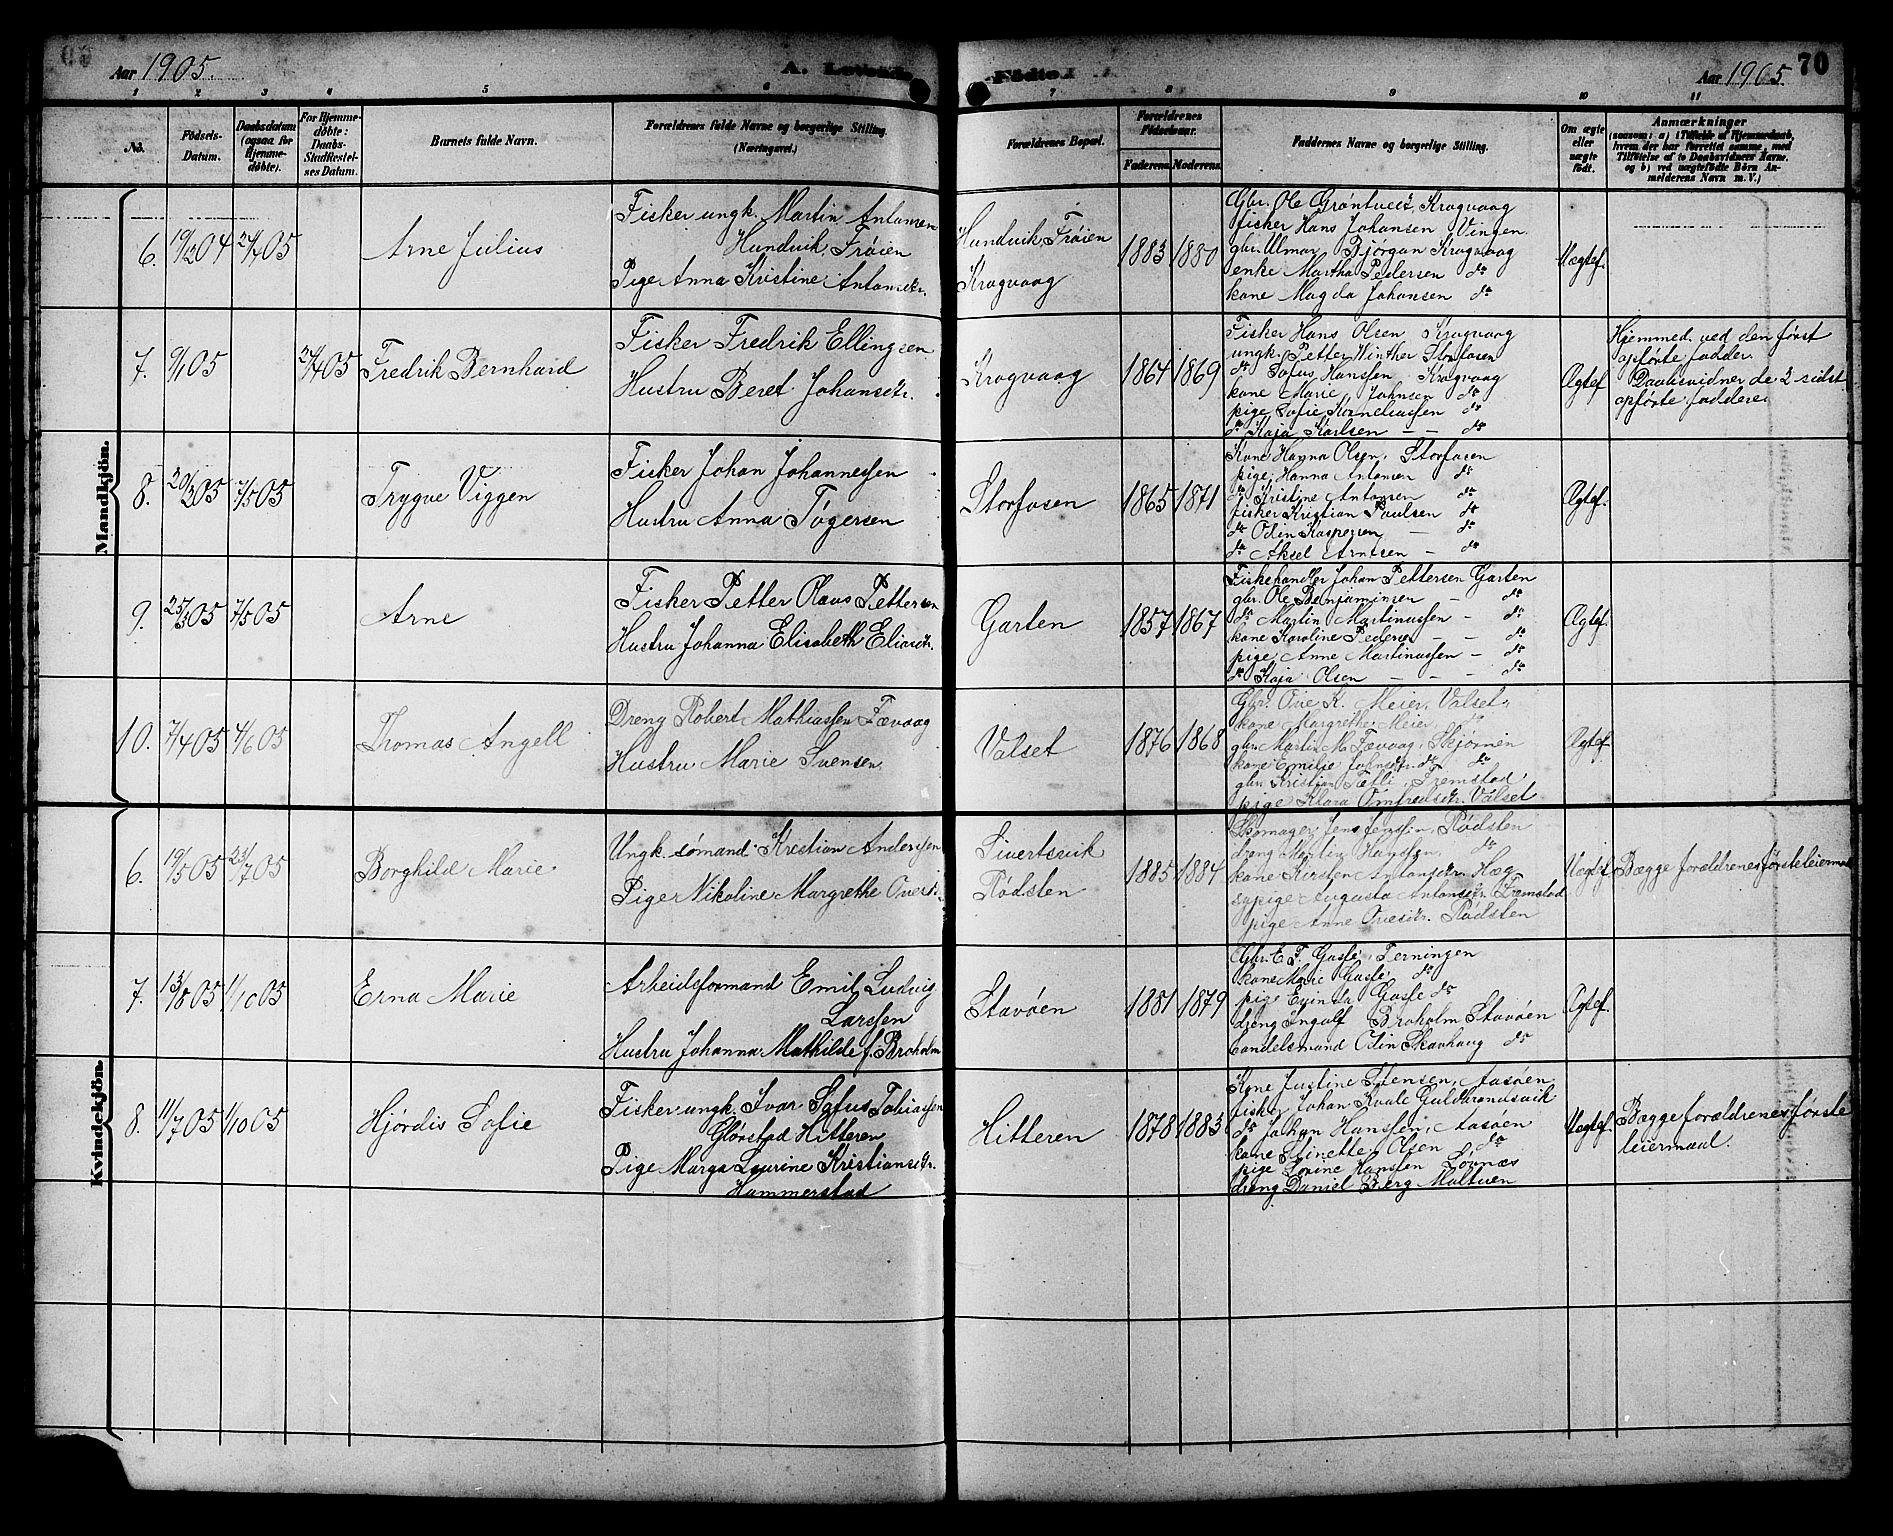 Aar 1905.
A. Levende
Fødte.
Aar 1905.
70
1 2 3 4 5 6 7 8 9 10 11
No.
Fødsels-
Datum.
Daabsdatum
(ogsaa for
Hjemme-
døbte).
For Hjemme-
døbte:
Daabs-
Stadfæstel-
ses Datum.
Barnets fulde Navn.
Forældrenes fulde Navne og borgerlige Stilling.
(Næringsvei.)
Forældrenes Bopæl.
Forældrenes
Fødselsaar.
Faderens. Moderens.
Faddernes Navne og borgerlige Stilling.
Om ægte
eller
uægte
født.
Anmærkninger
(saasom: a) i Tilfælde af Hjemmedaab,
hvem der har forrettet samme, med
Tilføielse af to Daabsvidners Navne,
og b) ved uægtefødte Børn An-
melderens Navn m. V.)
Mandkjön.
6. 19/12 04 24/4 05
Arne Julius
Fisker ungk. Martin Antonsen
Hundvik, Frøien
Pige Anna Kristine Antonsdtr.
Hundvik Frøien
Kragvaag
1883 1880
Gbr. Ole Grøntvedt, Kragvaag
fisker Hans Johansen Vingen
gbr. Ulmar Bjørgan Kragvaag
enke Martha Pedersen do
kone Magda Johansen do
Uægtef.
7. 9/1 05 24/4 05
Fredrik Bernhard
Fisker Fredrik Ellingsen
Hustru Beret Johansdtr.
Kragvaag
1864 1869
Fisker Hans Olsen Kragvaag
ungk. Petter Winther Storfosen
do Sofus Hanssen Kragvaag
kone Marie Johnsen do
pige Sofie Korneliussen do
do Kaja Karlsen — — do
Ægtef
Hjemmed. ved den først
opførte fadder.
Daabsvidner de 2 sidst
opførte faddere.
8. 20/3 05 7/5 05
Trygve Viggen
Fisker Johan Johannessen
Hustru Anna Tøgersen
Storfosen
1865 1871
Kone Hanna Olsen, Storfosen
pige Hanna Antonsen do
do Kristine Antonsen do
fisker Kristian Paulsen do
do Odin Kaspersen — do
do Aksel Arntsen — do
Ægtef.
9. 25/3 05 7/5 05
Arne
Fisker Petter Olaus Pettersen
Hustru Johanna Elisabeth Eliasdtr.
Garten
1857 1867
Fiskehandler Johan Pettersen Garten
gbr. Ole Benjaminsen — do
do Martin Martinussen — do
kone Karoline Pedersen — — do
pige Anne Martinussen — do
do Kaja Olsen — — — do
Ægtef.
10. 7/4 05 4/6 05
Thomas Angell
Dreng Robert Mathiassen Fævaag
Hustru Marie Svensen
Valset
1876 1868
Gbr. Ove K. Meier, Valset
kone Margrethe Meier, do
gbr. Martin M. Fævaag, Skjørnin
kone Emilie Johnsdtr. do do
gbr. Kristian Tetli, Fremstad
pige Klara Omfredsdtr. Valset
Ægtef.
Kvindekjön.
6. 19/5 05 23/7 05
Borghild Marie
Ungk. sømand Kristian Andersen
Pige Nikoline Margrethe Ovesdtr.
Sivertsvik
Rødsten
1885 1884
Skomager Jens Jenssen, Rødsten
dreng Martin Hanssen, do
kone Kirsten Antonsdtr. Hæg
sypige Augusta Antonsdtr. Fremstad
pige Anne Ovesdtr. Rødsten
Uægtef.
Begge forældrenes første leiermaal
7. 13/8 05 1/10 05
Erna Marie
Arbeidsformand Emil Ludvig
Larssen
Hustru Johanna Mathilde f. Broholm
Stavøen
1881 1879
Gbr. E. F. Gasfe, Terningen
kone Marie Gasfe, do
pige Eginda Gasfe do
dreng Ingolf Broholm Stavøen
handelsmand Odin Skavhaug do
Ægtef.
8. 11/7 05 1/10 05
Hjørdis Sofie
Fisker ungk. Ivar Sofus Tobiassen
Glørstad Hitteren
Pige Marga Laurine Kristiansdtr.
Hammerstad
Hitteren
1878 1883
Kone Justine Stensen, Aasøen
fisker Johan Kvale Guldbrandsvik
do Johan Hanssen, Aasøen
kone Stinette Olsen do
pige Lovine Hanssen Lørnæs
dreng Daniel Berg Maltuen
Uægtef.
Begge forældrenes første
leiermaal.